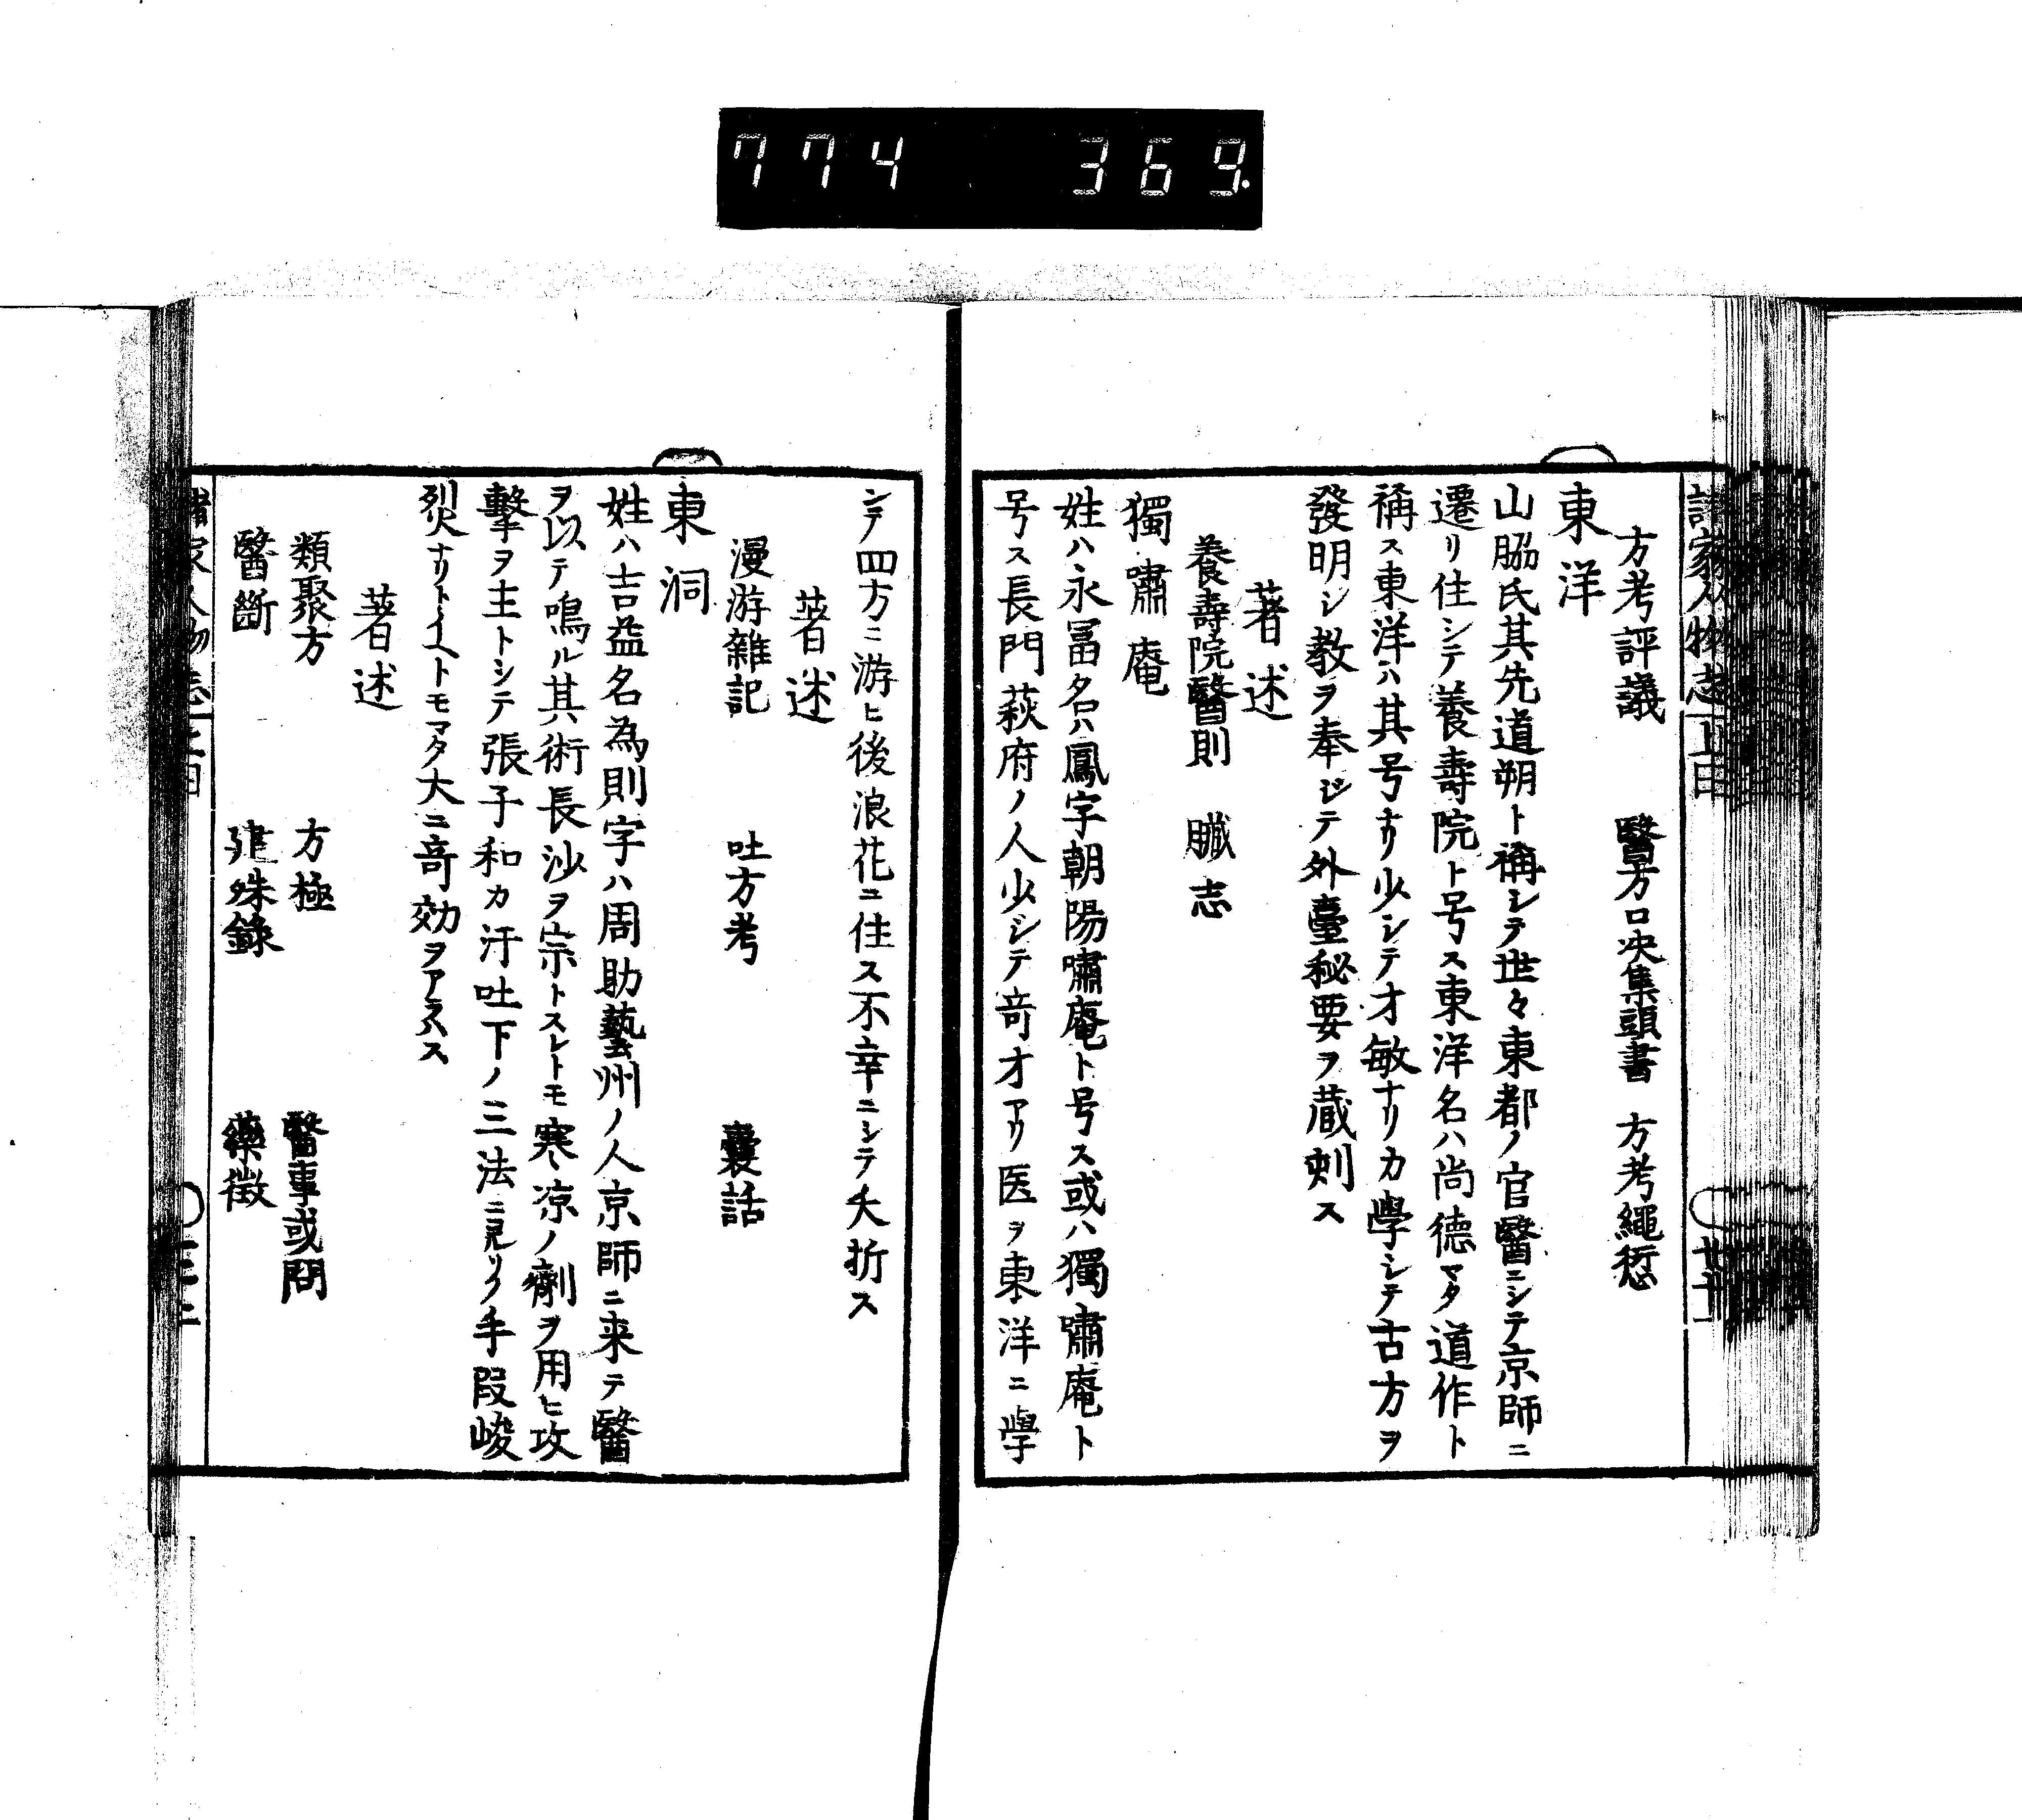 774 369.
諸家人物志
方考評議 醫方口决集頭書 方考繩愆
東洋
山脇氏其先道朔ト稱シテ世々東都ノ官醫ニシテ京師ニ
遷リ住シテ養壽院ト号ス東洋名ハ尚德マタ道作ト
稱ス東洋ハ其号ナリ少シテ才敏ナリカ學シテ古方ヲ
發明シ教ヲ奉ジテ外臺秘要ヲ蔵刻ス
著述
養壽院醫則 臟志
獨嘯庵
姓ハ永冨名ハ鳳字朝陽嘯庵ト号ス或ハ獨嘯庵ト
号ス長門萩府ノ人少シテ竒才アリ医ヲ東洋ニ學
シテ四方ニ游ヒ後浪花ニ住ス不幸ニシテ夭折ス
著述
漫游雜記 吐方考 囊話
東洞
姓ハ吉益名為則字ハ周助藝州ノ人京師ニ来テ醫
ヲ以テ鳴ル其術長沙ヲ宗トスレトモ寒凉ノ劑ヲ用ヒ攻
擊ヲ主トシテ張子和カ汗吐下ノ三法ニ見リク手段峻
烈ナリトイヘトモマタ大ニ竒効ヲアラハス
著述
類聚方 方極 醫事或問
醫斷 建殊錄 藥徵
諸家人物志